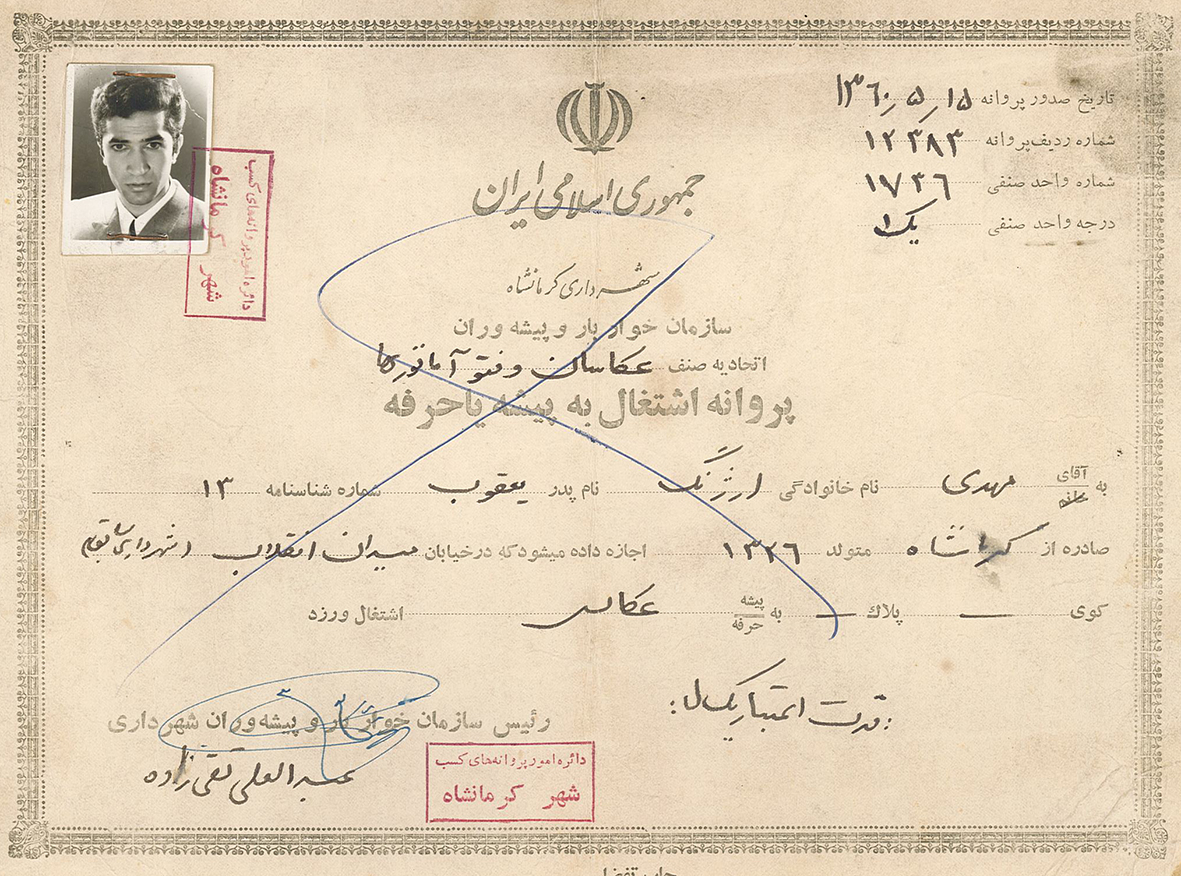 تاریخ صدور پروانه ۱۳۶۰٫۵٫۱۵
شماره ردیف پروانه ۱۲۳۸۳
شماره واحد صنفی ۱۷۳۶
درجه واحد صنفی یک
جمهوری اسلامی ایران
شهرداری کرمانشاه
سازمان خوار بار و پیشه وران
اتحادیه صنف عکاسان و فتو آماتوریها
پروانه اشتغال به پیشه یا حرفه
به آقای مهدی نام خانوادگی ارژنگ نام پدر یعقوب شماره شناسنامه ۱۳
صادره از کرمانشاه متولد ۱۳۲۶ اجازه داده میشود که در خیابان میدان انقلاب (شهرداری سابق)
کوی — پلاک — به پیشه حرفه عکاسی اشتغال ورزد
مدت اعتبار یکسال:
رئیس سازمان خوار بار و پیشه وران شهرداری
عبدالعلی تقی زاده
دائره امور پروانه‌های کسب
شهر کرمانشاه
دائره امور پروانه‌های کسب
شهر کرمانشاه